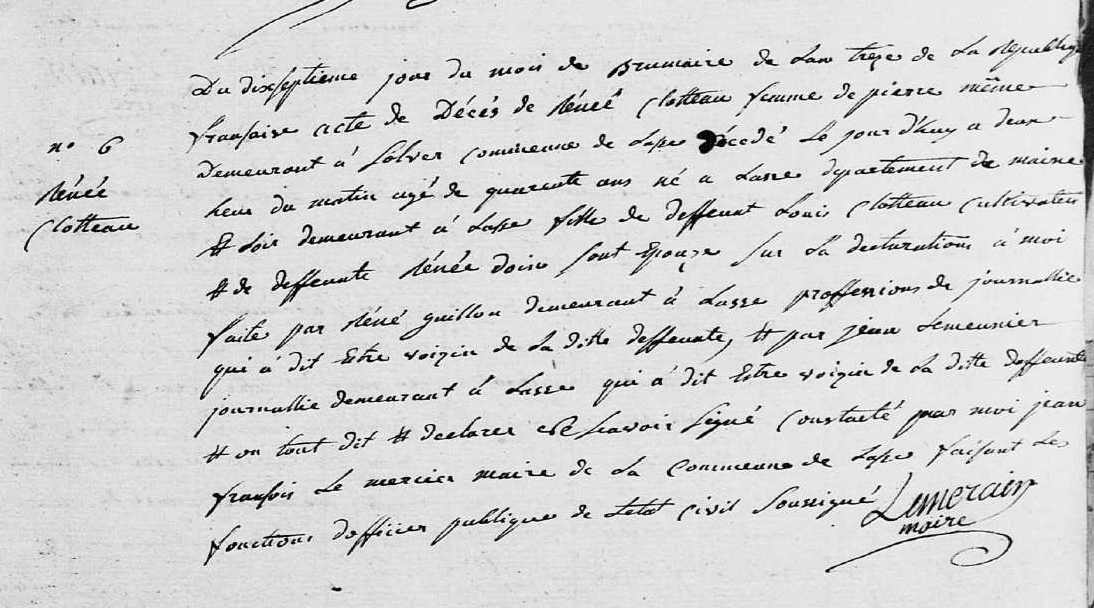 Du dixseptieme jour du mois de Brumaire de Lan treze de La Republique
franſaise acte de Décés de Réneé Clotteau femme de pierre
n° 6
demeurant á commeune de Lasse décedé Le jour d'huy a deux
Rénée
heur du matin agé de quarente ans né a Lasse departement de maine
Clotteau
et Loir demeurant á Lasse fille de deffeunt Louis Clotteau Cultivateur
et de deffeunte Rénée doise sont Epouze sur La declarations á moi
faite par Réné guillon demeurant á Lasse proffessions de journallie
qui á dit Estre voizin de La ditte deffeunte, et par jean Lemeunier
journallie demeurant á Lasse qui á dit Estre voizin de La ditte deffeunte
et on tout dit et declarer ne Scavoir Signé Constaté par moi jean
franſois Le mercier maire de La Commeune de Lasse faisant Les
fonctions dofficier publique de Letat Civil Soussigné
Lemercier
maire